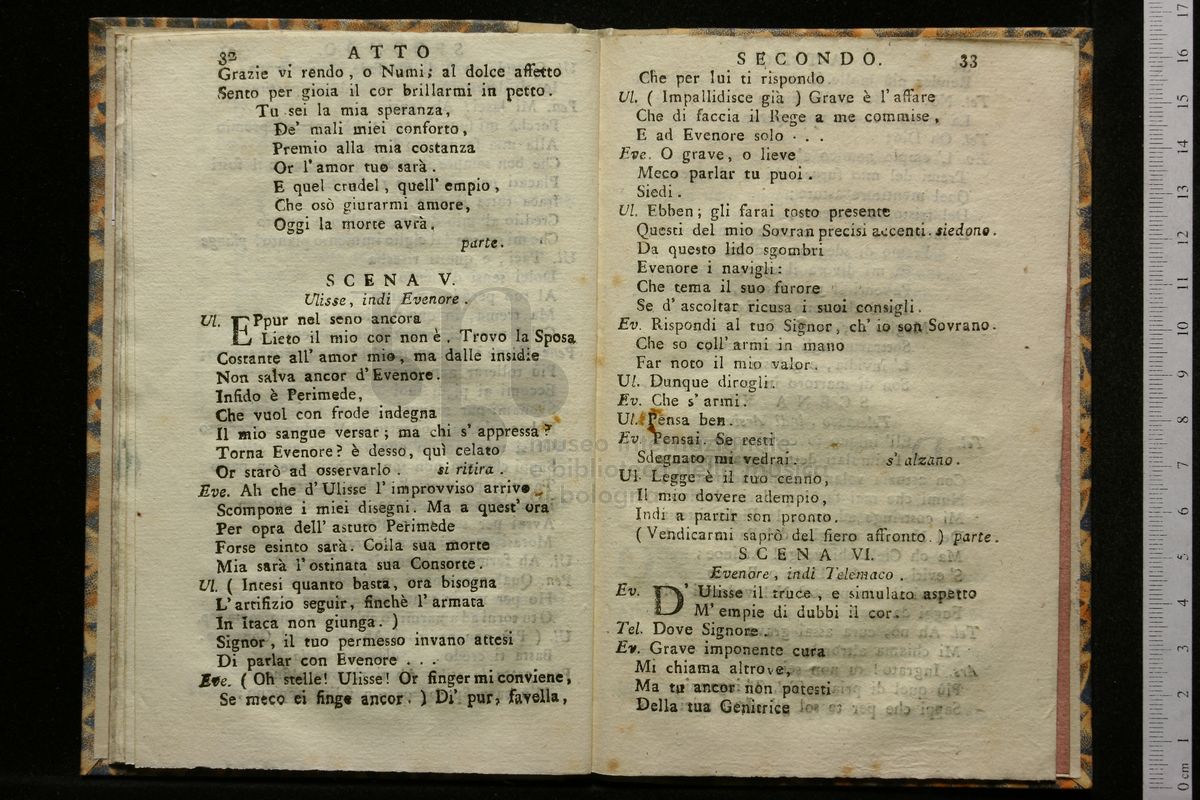 32 ATTO
Grazie vi rendo, o Numi; al dolce affetto
Sento per gioia il cor brillarmi in petto.
Tu sei la mia speranza,
De' mali miei conforto,
Premio alla mia costanza
Or l'amor tuo sarà.
E quel crudel, quell' empio,
Che osò giurarmi amore,
Oggi la morte avrà.
parte.
SCENA V.
Ulisse, indi Evenore.
Ul. EPpur nel seno ancora
Lieto il mio cor non è. Trovo la Sposa
Costante all' amor mio, ma dalle insidie
Non salva ancor d'Evenore.
Infido è Perimede,
Che vuol con frode indegna
Il mio sangue versar; ma chi s' appressa?
Torna Evenore? è desso, quì celato
Or starò ad osservarlo. si ritira.
Eve. Ah che d'Ulisse l'improvviso arrivo
Scompone i miei disegni. Ma a quest' ora
Per opra dell' astuto Perimede
Forse esinto sarà. Colla sua morte
Mia sarà l'ostinata sua Consorte.
Ul. ( Intesi quanto basta, ora bisogna
L'artifizio seguir, finchè l'armata
In Itaca non giunga. )
Signor, il tuo permesso invano attesi
Di parlar con Evenore . . .
Eve. ( Oh stelle! Ulisse! Or finger mi conviene,
Se meco ei finge ancor. ) Di' pur, favella,
SECONDO. 33
Che per lui ti rispondo.
Ul. ( Impallidisce già ) Grave è l'affare
Che di faccia il Rege a me commise,
E ad Evenore solo . . .
Eve. O grave, o lieve
Meco parlar tu puoi.
Siedi.
Ul. Ebben; gli farai tosto presente
Questi del mio Sovran precisi accenti. siedono.
Da questo lido sgombri
Evenore i navigli:
Che tema il suo furore
Se d' ascoltar ricusa i suoi consigli.
Ev. Rispondi al tuo Signor, ch' io son Sovrano.
Che so coll' armi in mano
Far noto il mio valor.
Ul. Dunque dirogli:
Ev. Che s' armi.
Ul. Pensa ben.
Ev. Pensai. Se resti
Sdegnato mi vedrai. s' alzano.
Ul. Legge è il tuo cenno,
Il mio dovere adempio,
Indi a partir son pronto.
( Vendicarmi saprò del fiero affronto. ) parte.
SCENA VI.
Evenore, indi Telemaco.
Ev. D' Ulisse il truce, e simulato aspetto
M' empie di dubbi il cor.
Tel. Dove Signore.
Ev. Grave imponente cura
Mi chiama altrove,
Ma tu ancor non potesti
Della tua Genitrice
museo
e biblioteca della musica
di bologna
0 cm 1 2 3 4 5 6 7 8 9 10 11 12 13 14 15 16 17